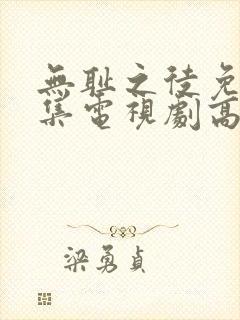 無耻之徒免
集電視劇高
梁勇貞